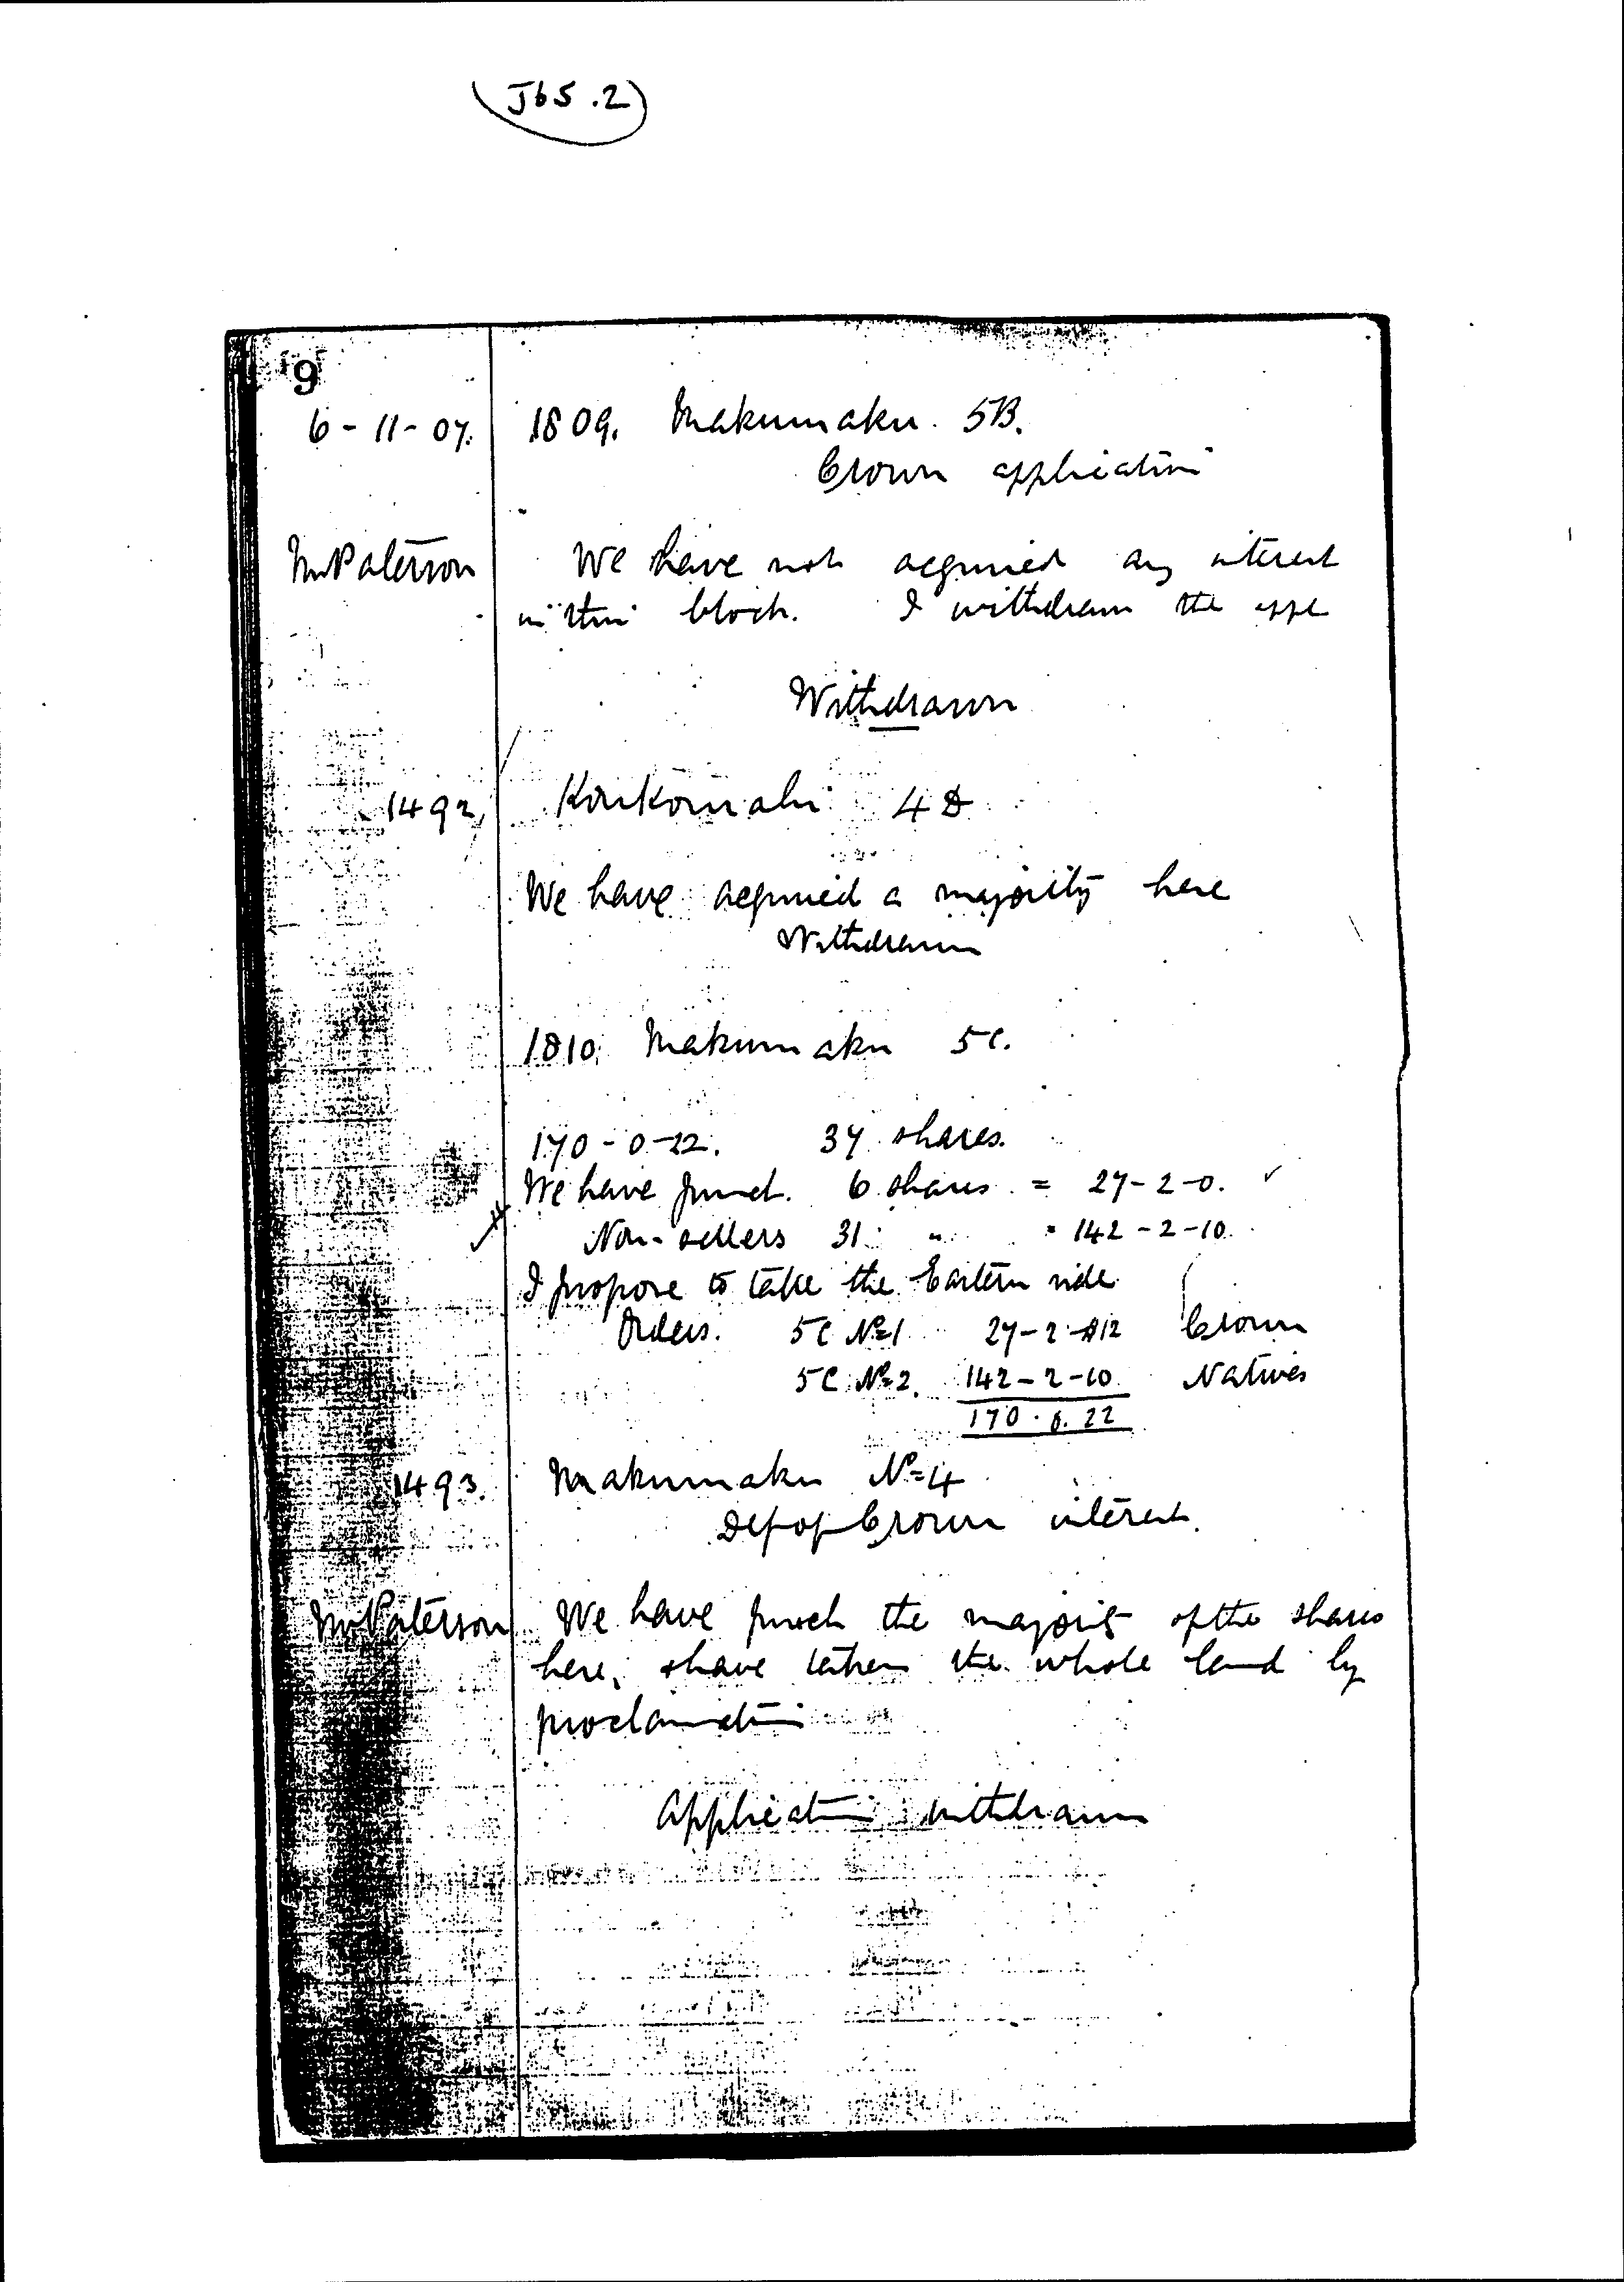 J65.2
19
6-11-07. 1809. Makumaku. 5B.
Crown application
Mr Paterson We have not acquired any interest
in this block. I withdraw the appl
Withdrawn
1492, 4D
We have acquired a majority here
Withdrawn
1810. Makumaku 5C.
170-0-22. 37 shares.
We have purcd. 6 shares = 27-2-0. ✓
Non-sellers 31 " = 142-2-10.
I propose to take the Eastern side
Orders. 5C No 1 27-2-12 Crown
5C No 2. 142-2-10 Natives
170.0.22
1493. Makumaku No 4
Def of Crown interest.
Mr Paterson We have purch the majority of the shares
here, & have taken the whole land by
proclamation
Application withdrawn